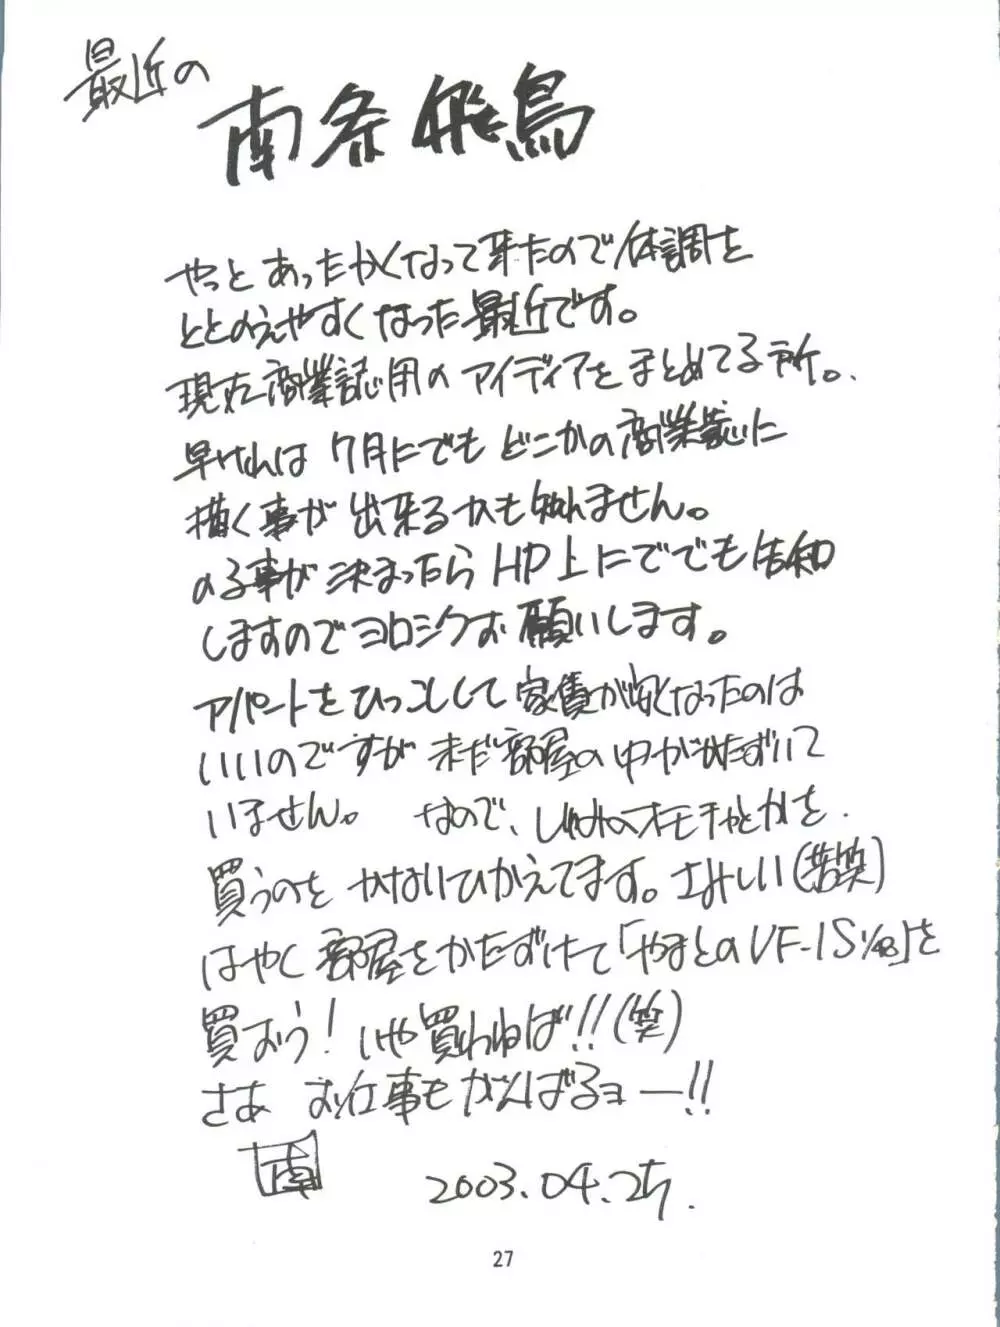 最近の
南条飛鳥
やっとあったかくなって来たので体調を
ととのえやすくなった最近です。
現在商業誌用のアイディアをまとめてる所。
早ければ7月にでもどこかの商業誌に
描く事が出来るかも知れません。
のる事が決まったらHP上にででも告知
しますのでヨロシクお願いします。
アパートをひっこしして家賃が安くなったのは
いいのですが未だ部屋の中がかたずいて
いません。 なので、しゅみのオモチャとかを
買うのをかなりひかえてます。さみしい(苦笑)
はやく部屋をかたずけて「やまとのVF-1S 1/48」を
買おう!いや買わねば!!(笑)
さあ お仕事もがんばるヨー!!
南 2003.04.25.
27